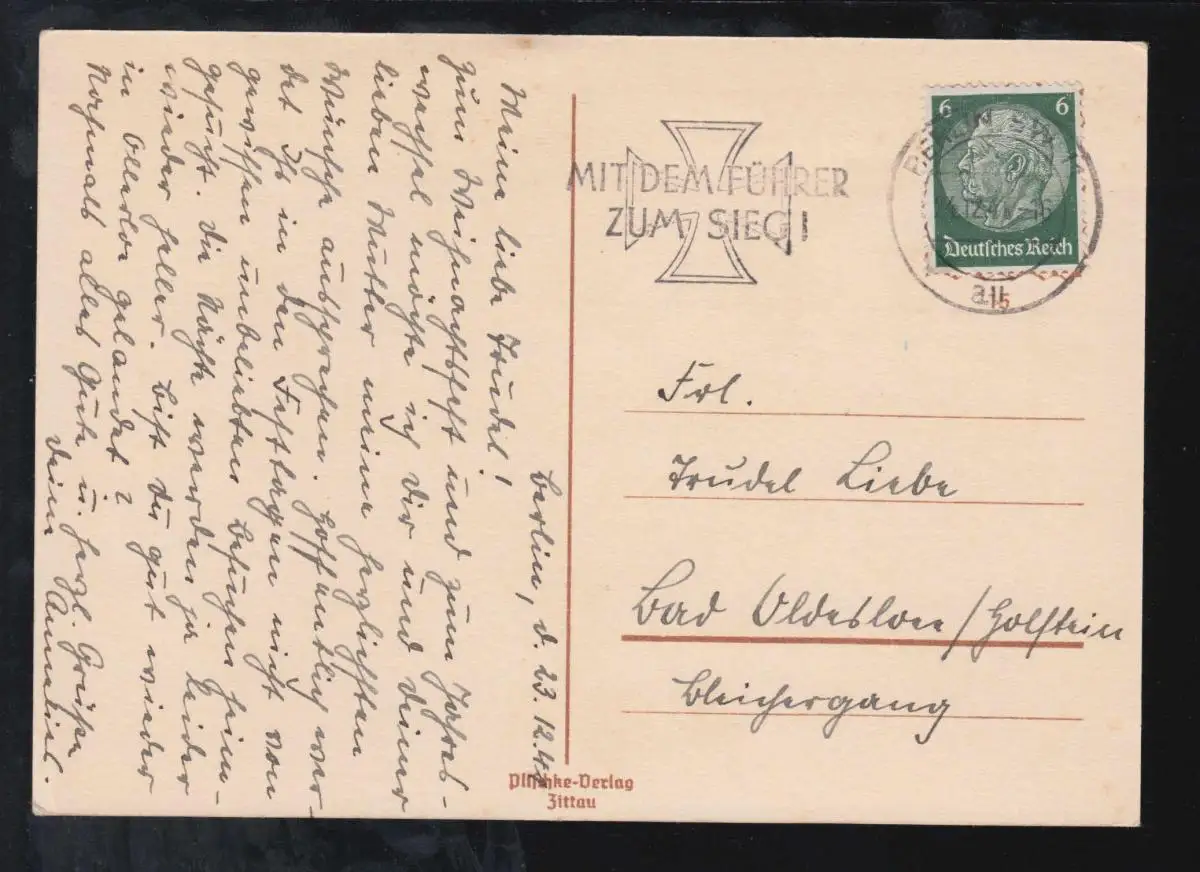 Berlin, d. 23.12.4
Meine liebe Trudel!
Zum Weihnachtsfest und zum Jahres-
wechsel möchte ich Dir und Deiner
lieben Mutter meine herzlichsten
Wünsche aussprechen. Hoffentlich wer-
det Ihr in den Festtagen nicht von
gewissen unbeliebten Besuchen heim-
gesucht. Die Nächte werden ja leider
wieder heller. Bist Du gut wieder
in Oldesloe gelandet?
Nochmals alles Gute u. herzl. Grüße
Deine Annelies.
Plischke-Verlag
Zittau
MIT DEM FÜHRER
ZUM SIEG!
6 6
Deutsches Reich
BERLIN SW
15
Frl.
Trudel Liebe
Bad Oldesloe/Holstein
Bleichergang